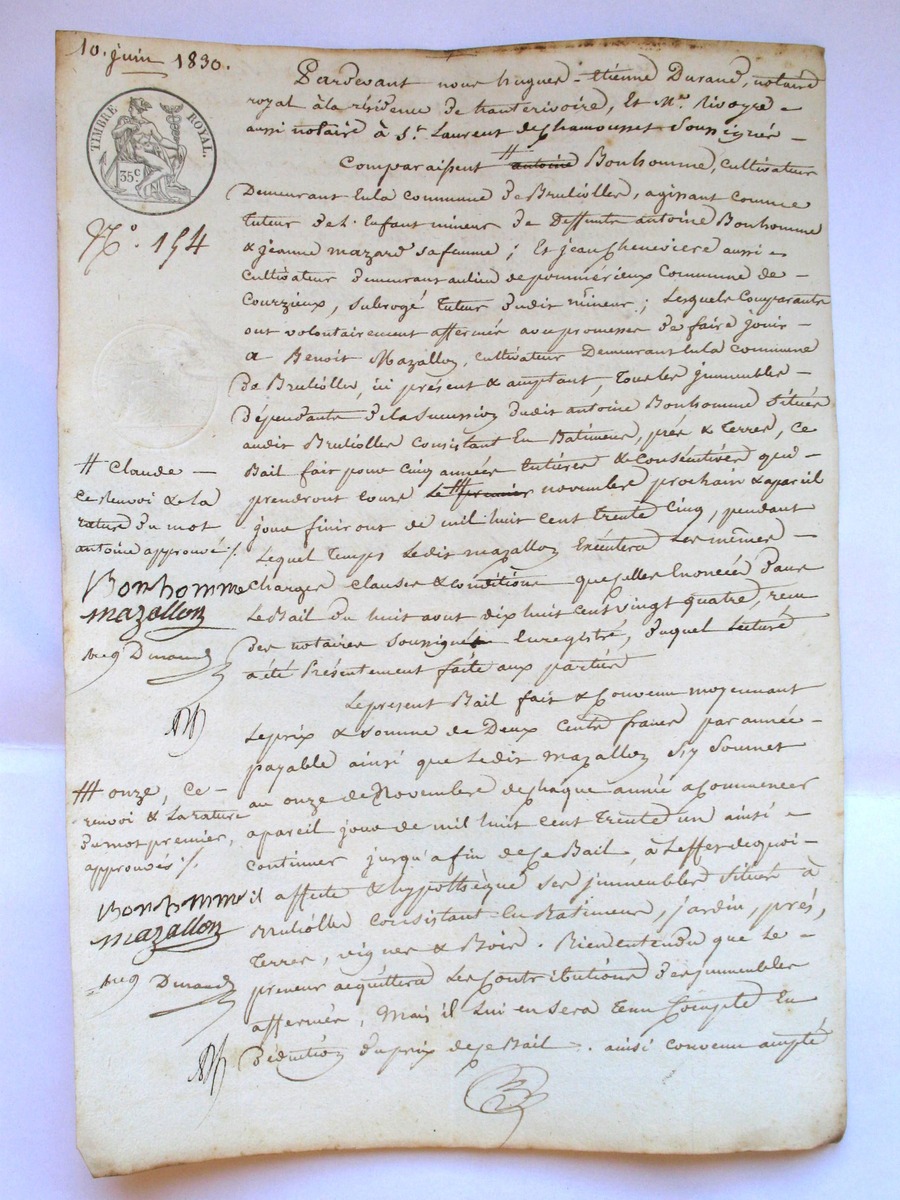 10. juin 1830.
TIMBRE ROYAL.
35c
N°. 154
Pardevant nous hugues-Etienne Durand, notaire
royal à la résidence de hauterivoire, Et Me. Rivoyre
aussi notaire à St. Laurent de Chamousset Soussignés
Comparaissent # antoine Bonhomme, cultivateur
Demeurant En la commune de Brulioller, agissant comme
Tuteur de l'Enfant mineur de Deffunts antoine Bonhomme
& jeanne mazard sa femme ; Et jean Chenevière aussi
cultivateur demeurant au lieu de pommérieux Commune de
Courzieux, subrogé Tuteur dudit mineur ; Lesquels Comparants
ont volontairement affermé avec promesse de faire jouir
a Benoit Mazallon, cultivateur Demeurant En la commune
de Brulioller, ici présent & acceptant, Tous les jmmeubles
dépendants de la Sucession dudit antoine Bonhomme Situés
audit Brulioller Consistant En Batiments, prés & Terres, Ce
Bail fait pour Cinq années Entières & Consécutives qui
prendront cours Le ## premier novembre prochain & a pareil
jour finiront de mil huit cent trente Cinq, pendant
Lequel Temps Ledit mazallon Exécutera Les mêmes
charges clauses & conditions que celles Enoncées dans
Le Bail du huit aout dix huit cent vingt quatre, reçu
des notaires soussignés Enregistré, duquel Lecture
a été Présentement faite aux parties
Le présent Bail fait & Convenu moyennant
Le prix & somme de Deux Cents francs par année
payable ainsi que Ledit mazallon s'y Soumet
au onze de Novembre de chaque année a Commencer
a pareil jour de mil huit cent Trente un ainsi
continuer jusqu'a fin de Ce Bail, à L'effet de quoi
il affecte & hypothèque ses jmmeubles Situés à
Bruliolle Consistant En Batiments, jardin, prés,
Terres, vignes & Bois. Bien Entendu que Le
preneur acquittera Les Contributions des jmmeubles
affermés, Mais il Lui en sera Tenu Compte En
déduction du prix de Ce Bail. ainsi convenu accepté
# Claude
Ce renvoi & La
rature du mot
antoine approuvés ./.
Bonhomme
mazallon
Durand
## onze, Ce
renvoi & La rature
du mot premier,
approuvés ./.
Bonhomme
mazallon
Durand